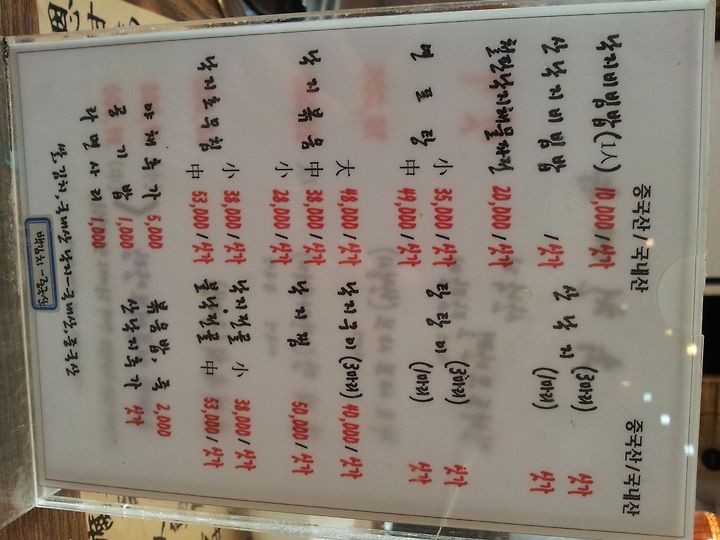 중국산/국내산 중국산/국내산
낙지비빔밥(1人) 10,000 / 싯가 산낙지 (3마리) 싯가
산낙지비빔밥 / 싯가 (1마리) 싯가
철판낙지해물파전 20,000 / 싯가
연포탕 小 35,000 / 싯가 탕탕이 (3마리) 싯가
中 49,000 / 싯가 (1마리) 싯가
낙지볶음 大 48,000 / 싯가 낙지구이 (3마리) 40,000 / 싯가
中 38,000 / 싯가 낙지찜 50,000 / 싯가
小 28,000 / 싯가
낙지초무침 小 38,000 / 싯가 낙지전골 小 38,000 / 싯가
中 53,000 / 싯가 불낙전골 中 53,000 / 싯가
야채추가 5,000 볶음밥 2,000
공기밥 1,000 산낙지추가 싯가
라면사리 1,000
쌀,김치,국내산 낙지-국내산,중국산
백김치-중국산